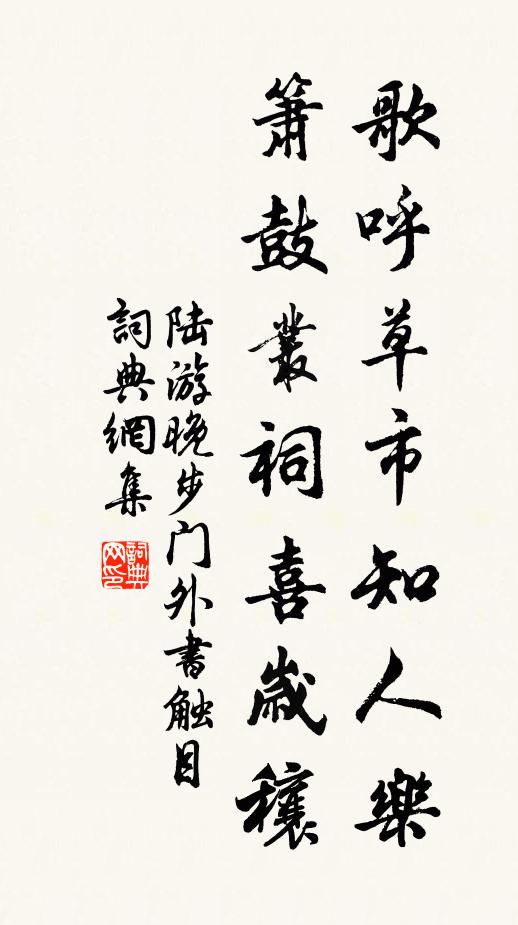 歌呼草市知人樂
簫鼓叢祠喜歲穰
陆游晚步门外書触目
詞典網集
詞典网印